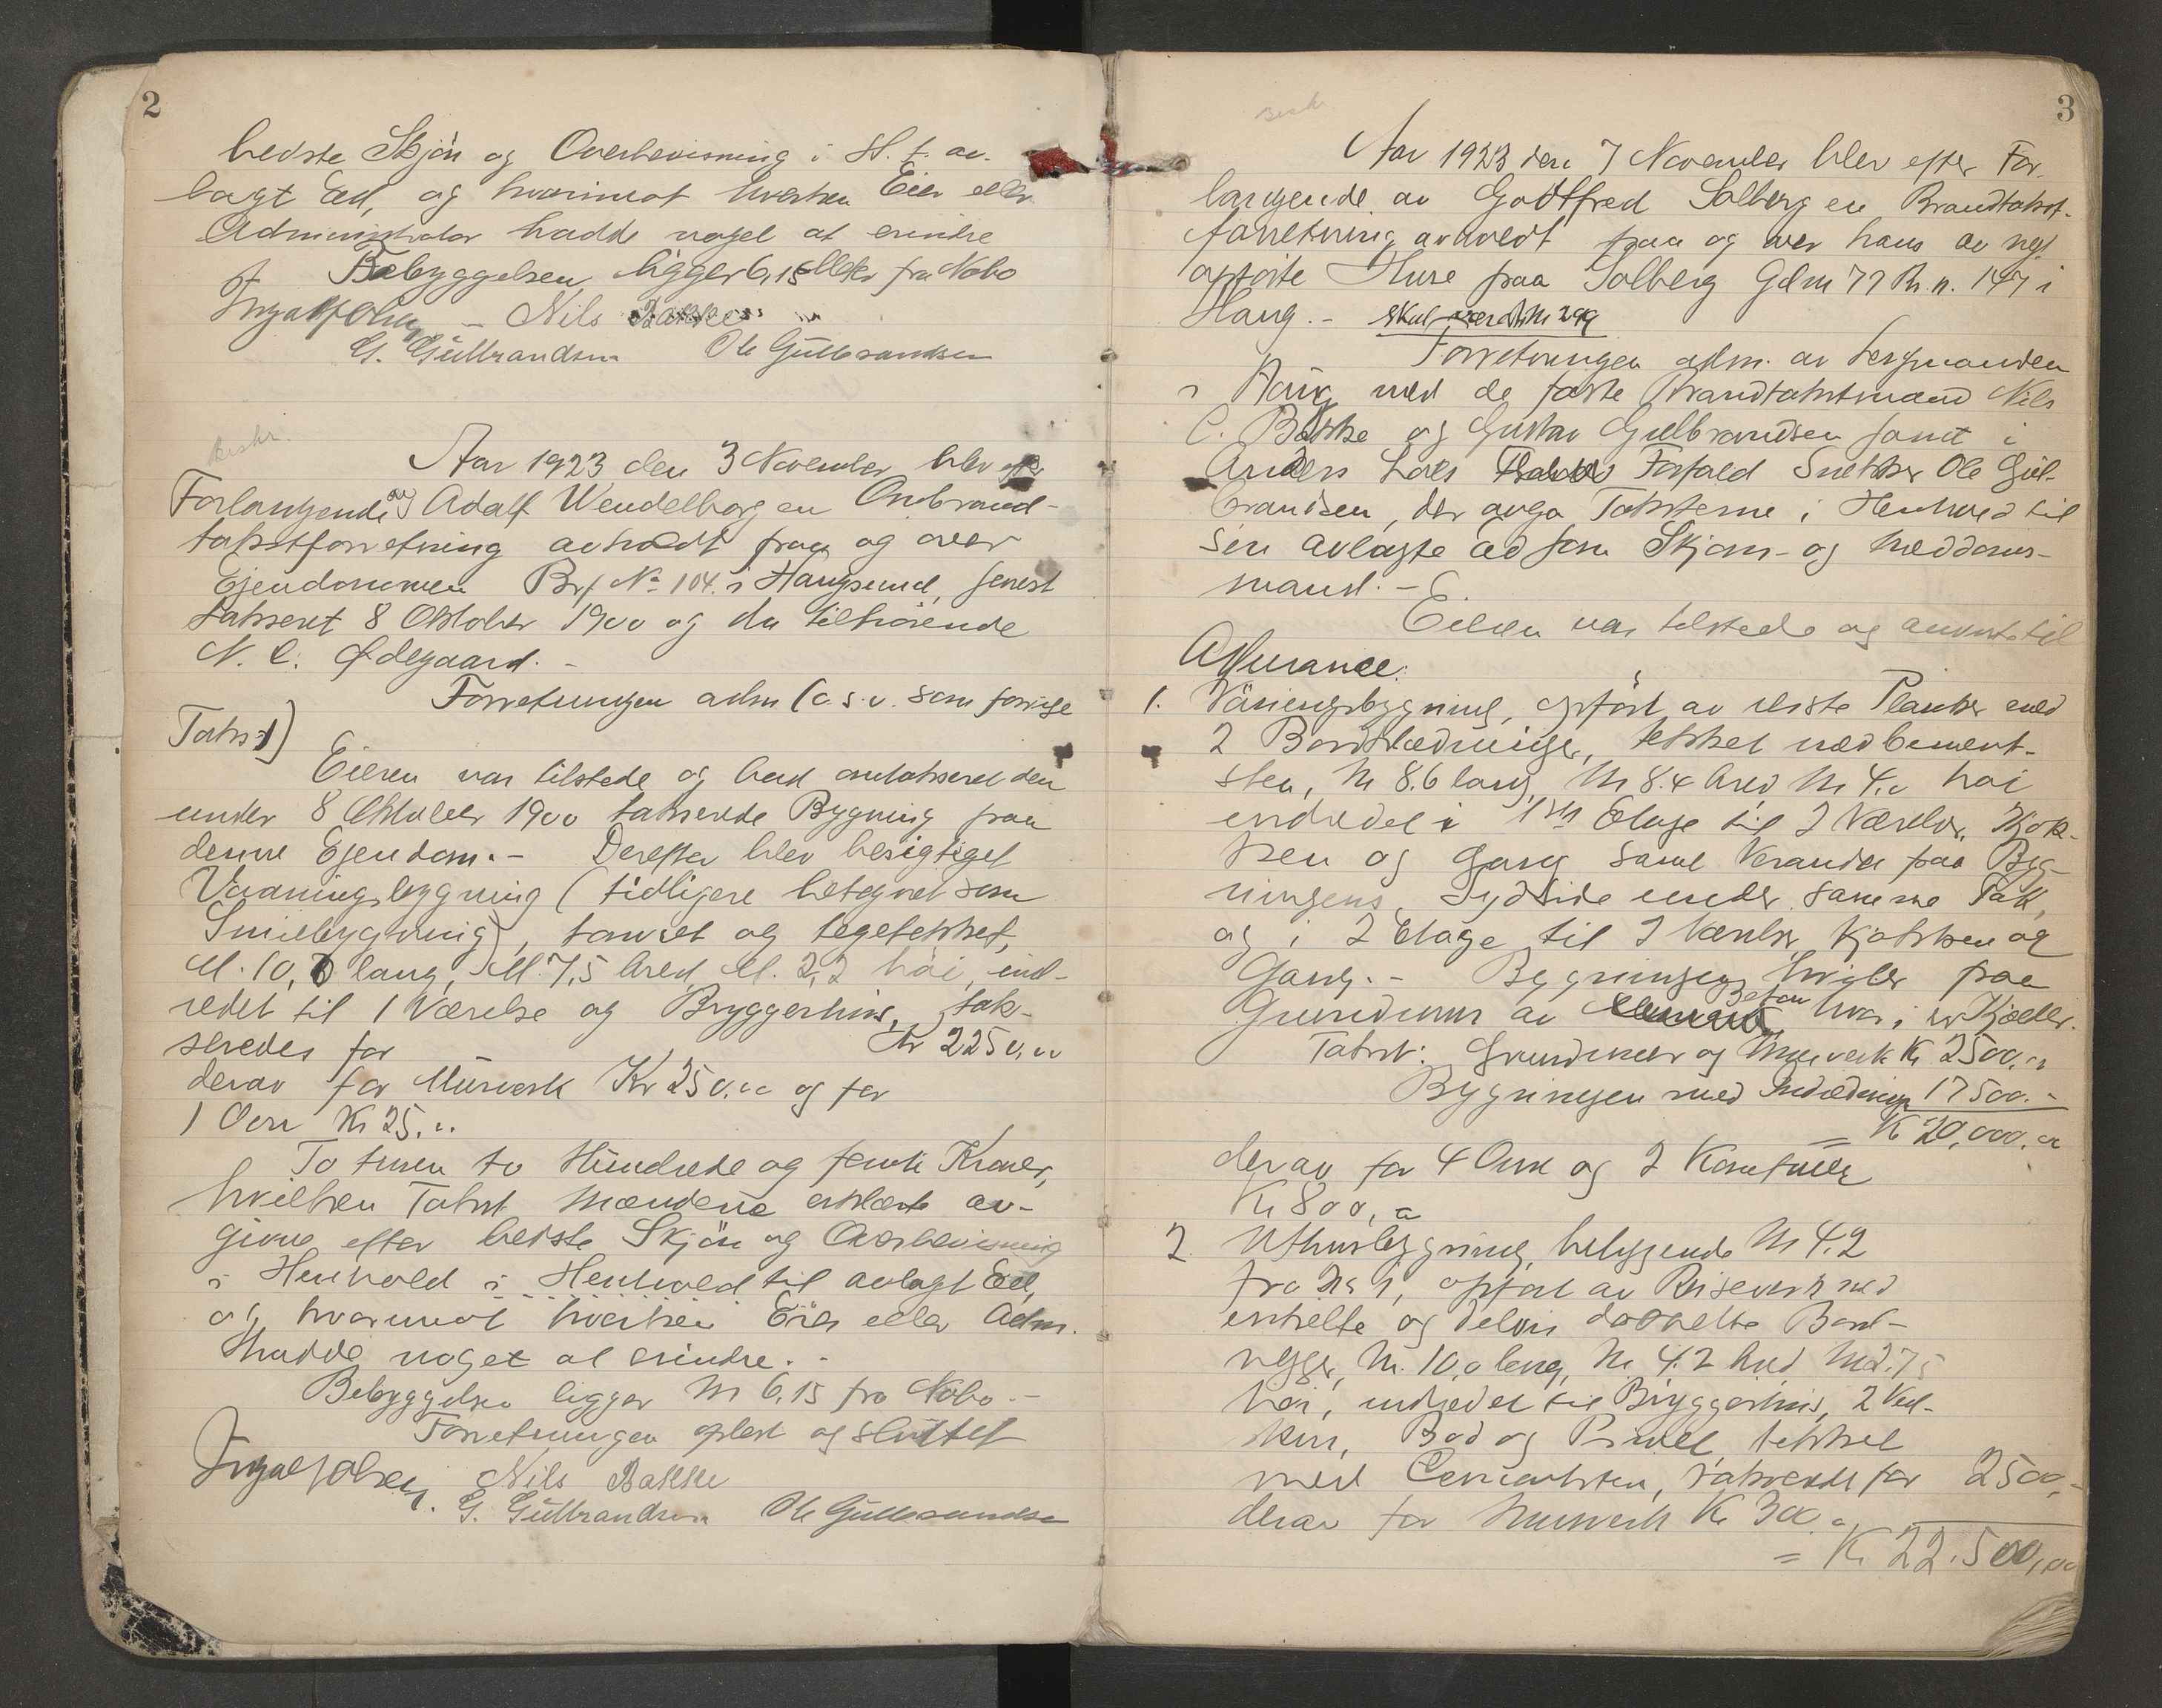 2
bedste Skjön og Overbevisning i H. t. av-
lagt Ed, og hvorimot hverken Eier eller
Administrator hadde noget at erindre
Bebyggelsen ligger 6,15 Meter fra Nabo
Ingv. Olsen - Nils Bakke
G. Gulbrandsen Ole Gulbrandsen
beskr.
Aar 1923 den 3 November blev efter
Forlangende av Adolf Wendelborg en Ombrand-
takstforretning avholdt paa og over
Ejendommen Brf No 104. i Haugsund, senest
takseret 8 Oktober 1900 og da tilhörende
N. C. Ødegaard. -
Forretningen adm (o. s. v. som forrige
Takst)
Eieren var tilstede og bad omtakseret den
under 8 Oktober 1900 takserede Bygning paa
denne Ejendom. - Derefter blev besigtiget
Vaaningsbygning (tidligere betegnet som
Smiebygning), tømret og teglteket,
M. 10,0 lang, M. 7,5 bred, M. 2,2 höi, ind-
redet til 1 Værelse og Bryggerhus, tak-
seredes for Kr 2250.00
derav for Mürverk Kr 250.00 og for
1 Ovn Kr 25.00
To tusen to Hündrede og femti Kroner,
hvilken Takst Mændene erklærte av-
givne efter bedste Skjön og Overbevisning
i Henhold i Henhold til avlagt Ed,
og hvorimot hverken Eier eller Adm.
Hadde noget at erindre. -
Bebyggelsen ligger M 6,15 fra Nabo. -
Forretningen oplest og slüttet
Nils Bakke
G. Gülbrandsen Ole Gulbrandsen
3
beskr.
Aar 1923 den 7 November blev efter For-
langende av Godtfred Solberg en Brandtakst-
forretning avholdt paa og over hans av nyt
opförte Huse paa Solberg G.No 77 Br. n. 147 i
Haug. - skal være Br. n 299
Forretningen adm. av Lensmanden
i Haug med de faste Brandtakstmænd Nils
C. Bakke og Gustav Gulbrandsen samt i
Anders Loes Forfald Snekker Ole Gul-
brandsen, der avga Taksterne i Henhold til
sin avlagte Ed som Skjøns- og Meddoms-
mand. -
Eieren var tilstede og anviste til
Assurance:
1. Våningsbygning, opfört av reiste Planker med
2 Bordklædninger, tekket med Cement-
sten, M 8.6 lang, M 8.4 bred M 4.0 höi
indredet i 1ste Etage til 2 Værelser, Kjøk-
ken og Gang samt Veranda paa Byg-
ningens Sydside under samme Tak,
og i 2 Etage til 2 Værelser, Kjøkken og
Gang. - Bygningen hviler paa
Grundmur av Beton hvor i er Kjælder.
Takst: Grundmur og Mürverk Kr 2500.00
Bygningen med Indredning 17500. -
= Kr 20,000.00
derav for 4 Ovne og 2 Komfurer
Kr 800,00
2. Uthusbygning, beliggende M 4.2
fra No 1, opfört av Reisverk med
enkelte og delvis dobbelte Bord-
vegger, M. 10,0 lang, M 4.2 bred, M 2.75
höi, indredet til Bryggerhus, 2 Ved-
skur, Bod og Privet, tekket
med Cementsten, takseredt for 2500,-
derav for Murverk Kr 300.00
= Kr 22.500,00